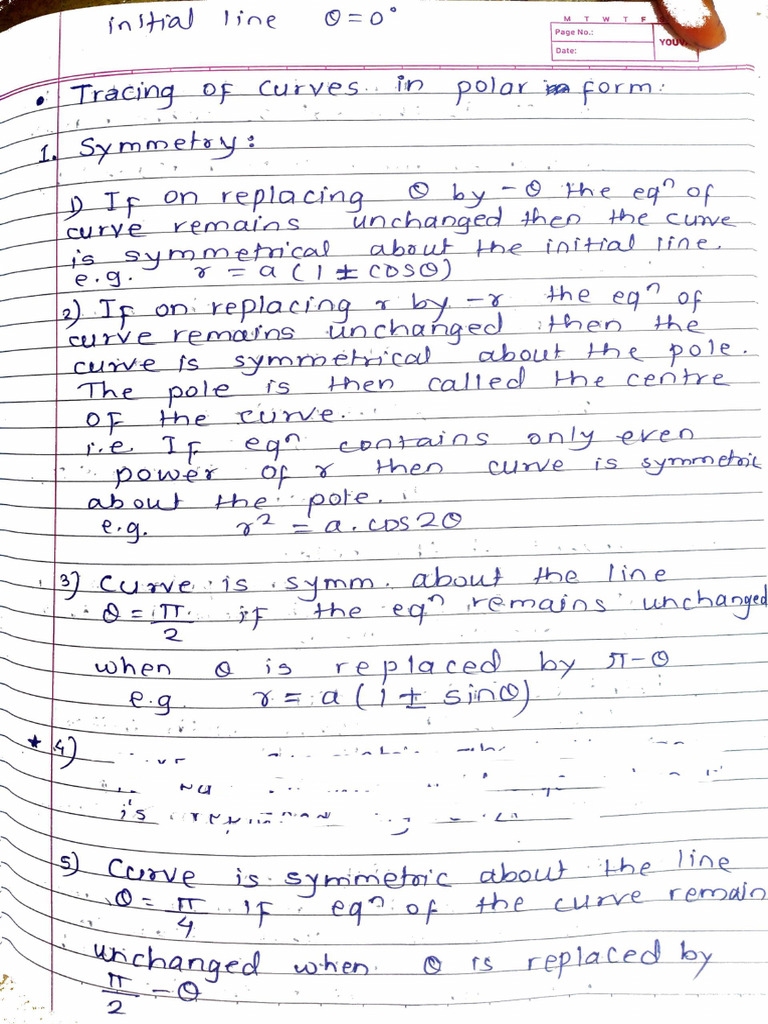 initial line θ=0°
M T W T F
Page No.:
Date:
YOUV
• Tracing of curves in polar form:
1. Symmetry:
1) If on replacing θ by -θ the eqⁿ of
curve remains unchanged then the curve
is symmetrical about the initial line.
e.g. r = a (1 ± cosθ)
2) If on replacing r by -r the eqⁿ of
curve remains unchanged then the
curve is symmetrical about the pole.
The pole is then called the centre
of the curve.
i.e If eqⁿ contains only even
power of r then curve is symmetric
about the pole.
e.g. r² = a.cos2θ
3) Curve is symm. about the line
θ = π/2 if the eqⁿ remains unchanged
when θ is replaced by π-θ
e.g r = a (1 ± sinθ)
* 4)
is
5) Curve is symmetric about the line
θ = π/4 if eqⁿ of the curve remain
unchanged when θ is replaced by
π/2 - θ